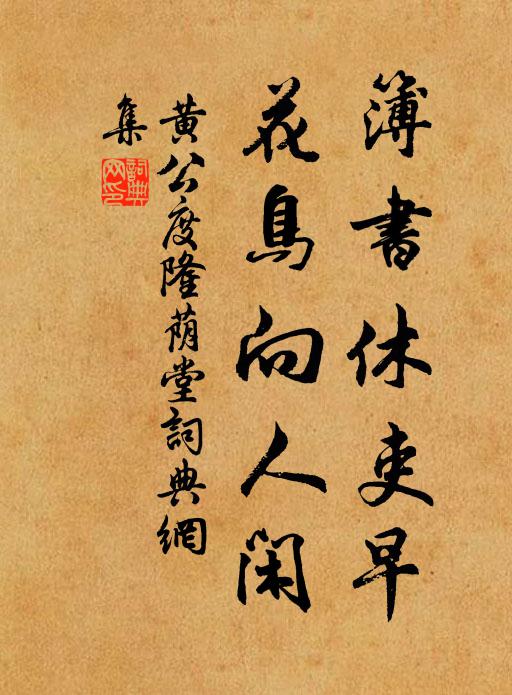 簿書休吏早
花鳥向人閑
黄公度隆蔭堂詞典網
集
詞典網印